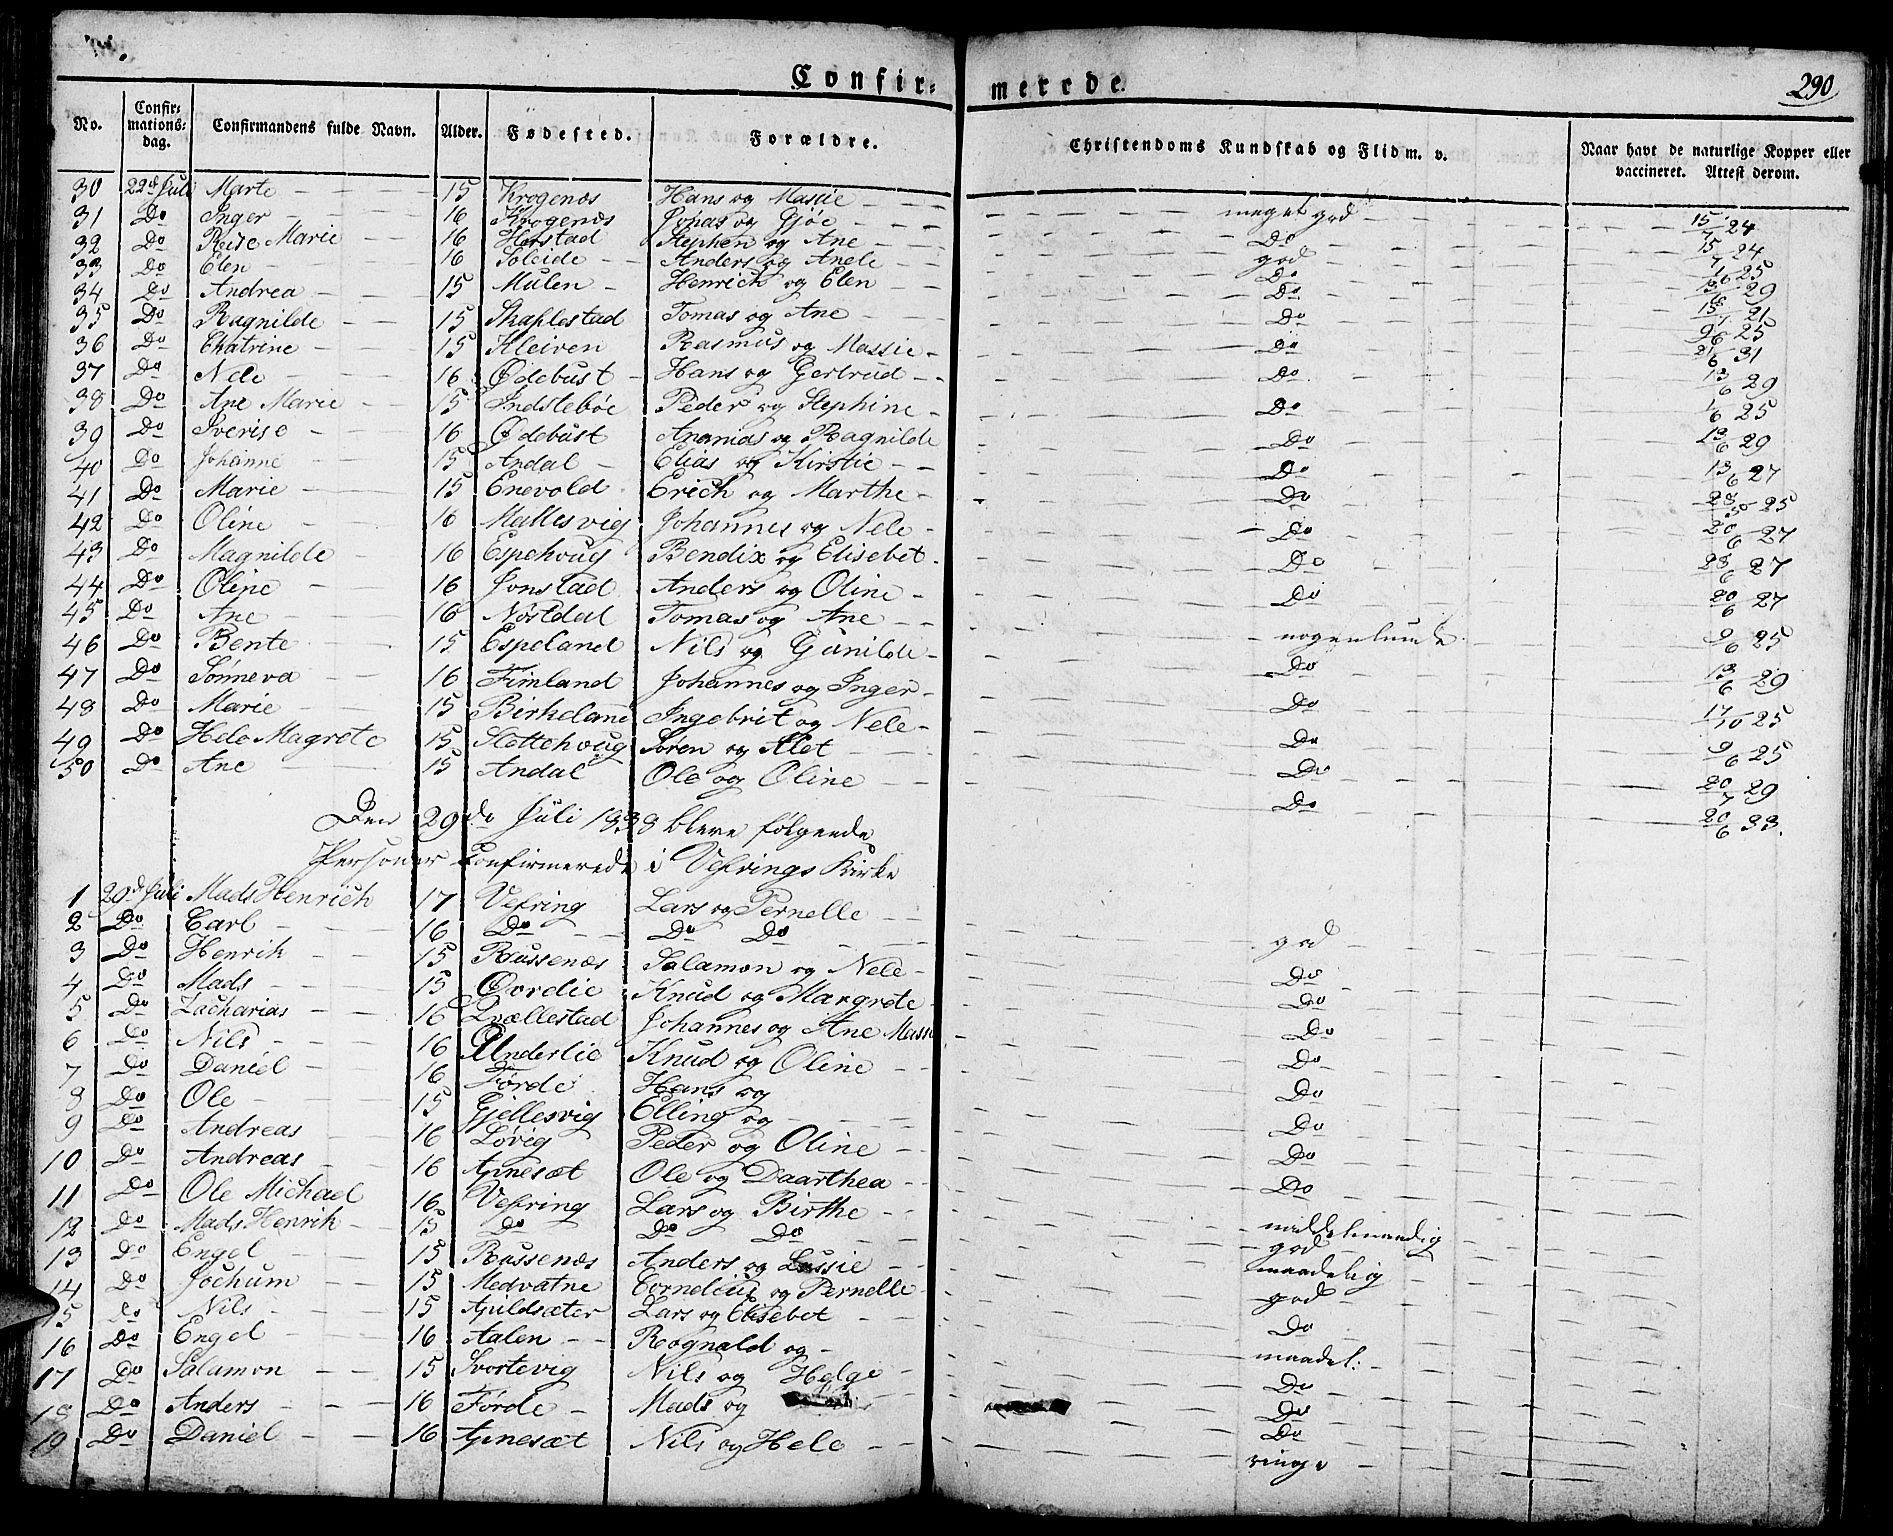 Confir=merede. 290
No. Confirmations-dag. Confirmandens fulde Navn. Alder. Fødested. Forældre. Christendoms Kundskab og Flid m. v. Naar havt de naturlige Kopper eller vaccineret. Attest derom.
30 22d Juli Marte 15 Krogenæs Hans og Massie meget god 15/7 24
31 Do Inger 16 Krogenæs Jonas og Gjøe Do 15/7 24
32 Do Marie 16 Herstad Stephen og Ane god 25
33 Do Elen 16 Soleide Anders og Anele Do 29
34 Do Andrea 15 Mulen Henrich og Elen Do 21
35 Do Ragnilde 15 Skaplestad Tomas og Ane Do 9/6 25
36 Do Chatrine 15 Kleiven Rasmus og Massie Do 21/6 31
37 Do Nele 16 Ødebust Hans og Gertrud Do 13/6 29
38 Do Ane Marie 15 Indstebøe Peder og Stephine Do 25
39 Do Sverise 16 Ødebust Ananias og Ragnilde Do 13/6 29
40 Do Johanne 15 Andal Elias og Kirstie Do 13/6 27
41 Do Marie 15 Enevold Erich og Marthe Do 25
42 Do Oline 16 Mallesvig Johannes og Nele Do 20/6 27
43 Do Magnilde 16 Espehoug Bendix og Elisebet Do 23/6 27
44 Do Oline 16 Jonstad Anders og Oline Do 20/6 27
45 Do Ane 16 Nøstdal Tomas og Ane nogenlunde 9/6 25
46 Do Bente 15 Espeland Nils og Gunilde Do 13/6 29
47 Do Sønneva 16 Fimland Johannes og Inger Do 17/10 25
48 Do Marie 15 Birkeland Ingebrit og Nele Do 9/6 25
49 Do Hele Magrete 15 Slottehoug Søren og Alet Do 20/7 29
50 Do Ane 15 Andal Ole og Oline Do 20/6 33.
Den 29de Juli 1838 bleve følgende
Personer Confirmerede i Vefrings Kirke
1 29d Juli Mads Henrich 17 Vefring Lars og Pernelle god
2 Do Carl 16 Do Do Do Do
3 Do Henrik 15 Russenæs Salamon og Nele Do
4 Do Mads 15 Øvrelie Knud og Margrete Do
5 Do Zacharias 16 Johannes og Ane Massi Do
6 Do Nils 16 Underlie Knud og Oline Do
7 Do Daniel 16 Førde Hans og Do
8 Do Ole 15 Gjellesvig Elling og Do
9 Do Andreas 16 Løvig Peder og Oline Do
10 Do Andreas 16 Apnesæt Ole og Daarthea
11 Do Ole Michael 16 Vefring Lars og Birthe
12 Do Mads Henrik 15 Do Do Do god
13 Do Engel 15 Russenæs Anders og Lussie maadelig
14 Do Jochum 15 Medvatne Cornelius og Pernelle god
15 Do Nils 15 Apildsæter Lars og Elisebet Do
16 Do Engel 16 Aalen Rognald og maadel:
17 Do Salamon 15 Svortevig Nils og Helge Do
18 Do Anders 16 Førde Mads og Do
19 Do Daniel 16 Apnesæt Nils og Hele Do
ringe